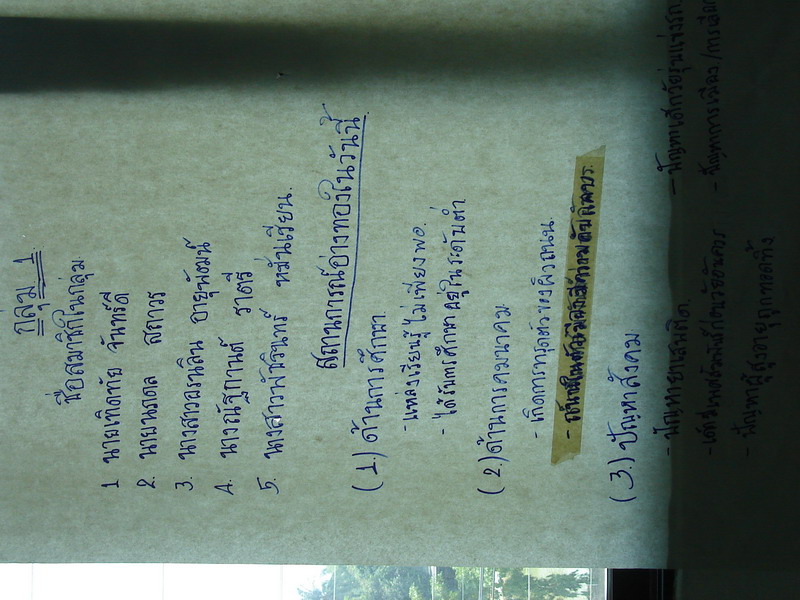 กลุ่ม 1
ชื่อสมาชิกในกลุ่ม
1 นายเทิดทัย จันทร์ดี
2. นายนรดล สถาวร
3. นางสาวอรนลิน อายุพัฒน์
4. นางณัฐกานต์ ราตรี
5. นางสาวพัชรินทร์ หมั่นเรียน.
สถานการณ์อ่างทองในวันนี้
(1.) ด้านการศึกษา.
- แหล่งเรียนรู้ไม่เพียงพอ.
- ได้รับการศึกษาอยู่ในระดับต่ำ
(2.) ด้านการคมนาคม
- เกิดการทรุดตัวของผิวถนน.
(3.) ปัญหาสังคม
- ปัญหายาเสพติด.
- ปัญหาเด็กวัยรุ่นแข่งรถ
- เด็กมีเพศสัมพันธ์ก่อนวัยอันควร
- ปัญหาการเมือง/การเลือก
- ปัญหาผู้สูงอายุถูกทอดทิ้ง